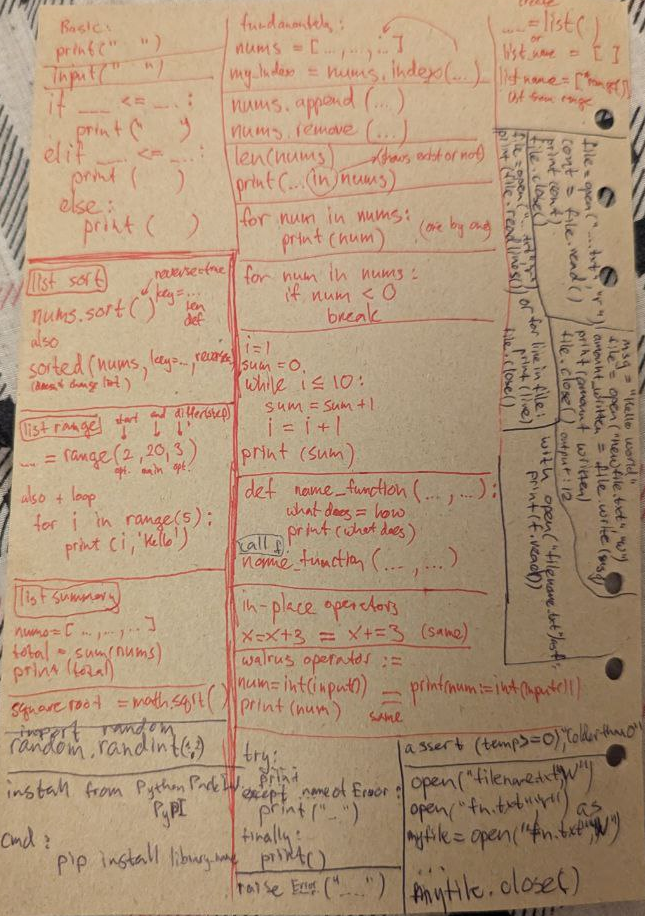 Basic:
print(" ")
input(" ")
if ___ <= ___:
print(" ")
elif ___ <= ___:
print( )
else:
print( )
list sort
reverse=true
nums.sort( ) key=...
len
def
also
sorted(nums, key=..., reverse
(doesn't change list)
list range
start end differ(step)
... = range(2, 20, 3)
opt. main opt.
also + loop
for i in range(5):
print(i, 'Hello')
list summary
nums=[ ..., ..., .. ]
total = sum(nums)
print(total)
square root = math.sqrt( )
import random
random.randint(:,:)
install from Python Pack
PyPI
cmd:
pip install library_name
fundamentals:
nums = [..., ..., ...]
my_index = nums.index(...)
nums.append(...)
nums.remove(...)
len(nums)
(shows exist or not)
print(...(in) nums)
for num in nums:
print(num) (one by one)
for num in nums:
if num < 0
break
i=1
sum=0
while i ≤ 10:
sum = sum+1
i = i+1
print(sum)
def name_function(..., ...):
what does = how
print(what does)
call f
name_function(..., ...)
in-place operators
x=x+3 = x+=3 (same)
walrus operator :=
num=int(input()) = print(num:=int(input()))
print(num) same
try:
print
except name of Error:
print("...")
finally:
print()
raise Error("....")
create
.... = list( )
or
list_name = [ ]
list name = [*range()]
list from range
file=open("...txt", "r")
cont = file.read()
print(cont)
file.close()
file=open("...txt","r")
print(file.readlines()) or for line in file:
print(line)
file.close()
msg = "Hello world"
file = open("newfile.txt" "w")
amount_written = file.write(msg)
print(amount written)
file.close() output: 12
with open("filename.txt") as f:
print(f.read())
assert (temp>=0), "Colder than 0"
open("filename.txt","w")
open("fn.txt","r") as
myfile = open("fn.txt","w")
myfile.close()